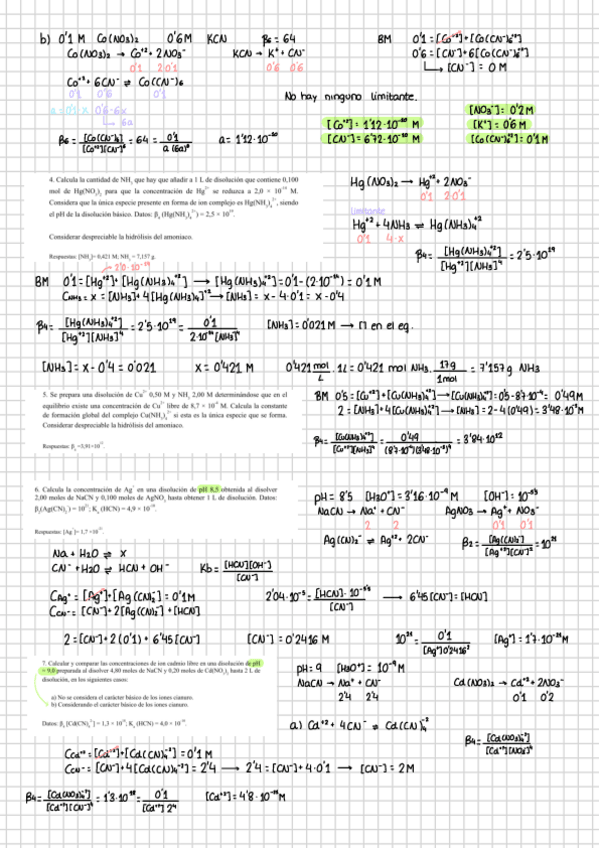 b) 0'1 M Co(NO3)2 0'6M KCN β6 = 64 BM 0'1 = [Co+2]+[Co(CN)6-4]
Co(NO3)2 → Co+2 + 2NO3- KCN → K+ + CN- 0'6 = [CN-]+6[Co(CN)6-4]
0'1 2·0'1 0'6 0'6 → [CN-] = 0 M
Co+2 + 6CN- ⇌ Co(CN-)6
0'1 0'6 0'1
No hay ninguno limitante.
a = 0'1-X 0'6-6x
6a
[NO3-] = 0'2M
[Co+2] = 1'12·10-10 M [K+] = 0'6M
β6 = [Co(CN-)6]/[Co+2][CN-]6 = 64 = 0'1/a(6a)6 a = 1'12·10-10 [CN-] = 6'72·10-10 M [Co(CN)6-4] = 0'1 M
4. Calcula la cantidad de NH3 que hay que añadir a 1 L de disolución que contiene 0,100
mol de Hg(NO3)2 para que la concentración de Hg2+ se reduzca a 2,0 × 10-14 M.
Considera que la única especie presente en forma de ion complejo es Hg(NH3)4 2+, siendo
el pH de la disolución básico. Datos: β4 (Hg(NH3)4 2+) = 2,5 × 1019.
Considerar despreciable la hidrólisis del amoniaco.
Respuestas: [NH3]= 0,421 M; NH3 = 7,157 g.
Hg(NO3)2 → Hg+2 + 2NO3-
0'1 2·0'1
Limitante
Hg+2 + 4NH3 ⇌ Hg(NH3)4+2
0'1 4-x
β4 = [Hg(NH3)4+2]/[Hg+2][NH3]4 = 2'5·1019
2'0·10-14
BM 0'1 = [Hg+2]+[Hg(NH3)4+2] → [Hg(NH3)4+2] = 0'1-(2·10-14) = 0'1 M
CNH3 = x = [NH3]+4[Hg(NH3)4]+2 → [NH3] = x - 4·0'1 = x-0'4
β4 = [Hg(NH3)4+2]/[Hg+2][NH3]4 = 2'5·1019 = 0'1/2·10-14[NH3]4 [NH3] = 0'021 M → M en el eq.
[NH3] = x - 0'4 = 0'021 x = 0'421 M 0'421 mol/L · 1L = 0'421 mol NH3 · 17g/1mol = 7'157 g NH3
5. Se prepara una disolución de Cu2+ 0,50 M y NH3 2,00 M determinándose que en el
equilibrio existe una concentración de Cu2+ libre de 8,7 × 10-4 M. Calcula la constante
de formación global del complejo Cu(NH3)4 2+ si esta es la única especie que se forma.
Considerar despreciable la hidrólisis del amoniaco.
BM 0'5 = [Cu+2]+[Cu(NH3)4+2] → [Cu(NH3)4+2] = 0'5-8'7·10-4 = 0'49M
2 = [NH3]+4[Cu(NH3)4+2] → [NH3] = 2-4(0'49) = 3'48·10-3M
β4 = [Cu(NH3)4+2]/[Cu+2][NH3]4 = 0'49/(8'7·10-4)(3'48·10-3)4 = 3'84·1012
6. Calcula la concentración de Ag+ en una disolución de pH 8,5 obtenida al disolver
2,00 moles de NaCN y 0,100 moles de AgNO3 hasta obtener 1 L de disolución. Datos:
β2(Ag(CN)2-) = 1021; Ka (HCN) = 4,9 × 10-10.
pH = 8'5 [H3O+] = 3'16·10-9 M [OH-] = 10-5'5
NaCN → Na+ + CN- AgNO3 → Ag+ + NO3-
2 2 0'1 0'1
Ag(CN)2- ⇌ Ag+2 + 2CN- β2 = [Ag(CN)2-]/[Ag+2][CN-]2 = 1021
Na + H2O ⇌ X
CN- + H2O ⇌ HCN + OH- Kb = [HCN][OH-]/[CN-]
CAg+ = [Ag+]+[Ag(CN)2-] = 0'1M 2'04·10-5 = [HCN]·10-5'5/[CN-] → 6'45[CN-] = [HCN]
CCN- = [CN-]+2[Ag(CN)2-]+[HCN]
2 = [CN-]+2(0'1)+6'45[CN-] [CN-] = 0'2416 M 1021 = 0'1/[Ag+]0'24162 [Ag+] = 1'7·10-21 M
7. Calcular y comparar las concentraciones de ion cadmio libre en una disolución de pH
= 9,0 preparada al disolver 4,80 moles de NaCN y 0,20 moles de Cd(NO3)2 hasta 2 L de
disolución, en los siguientes casos:
a) No se considera el carácter básico de los iones cianuro.
b) Considerando el carácter básico de los iones cianuro.
Datos: β4 [Cd(CN)4 2-] = 1,3 × 1018; Ka (HCN) = 4,0 × 10-10.
pH = 9 [H3O+] = 10-9 M
NaCN → Na+ + CN- Cd(NO3)2 → Cd+2 + 2NO3-
2'4 2'4 0'1 0'2
a) Cd+2 + 4CN- ⇌ Cd(CN)4-2
β4 = [Cd(NO3)4-2]/[Cd+2][NO3]4
CCd+2 = [Cd+2]+[Cd(CN)4-2] = 0'1 M
CCN- = [CN-]+4[Cd(CN)4-2] = 2'4 → 2'4 = [CN-]+4·0'1 → [CN-] = 2M
β4 = [Cd(NO3)4-2]/[Cd+2][CN-]4 = 1'3·1018 = 0'1/[Cd+2]24 [Cd+2] = 4'8·10-21M